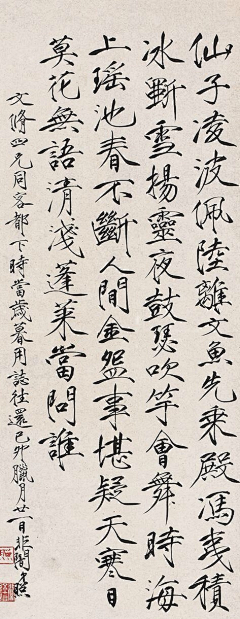 仙子凌波佩陸離文魚先乘殿馮夷積
冰斲雪揚靈夜鼓瑟吹竽會舞時海
上瑤池春不斷人間金盌事堪疑天寒日
莫花無語清淺蓬萊當問誰
文脩四兄同客都下時當歲暮用誌往還己卯臘月廿日非闇